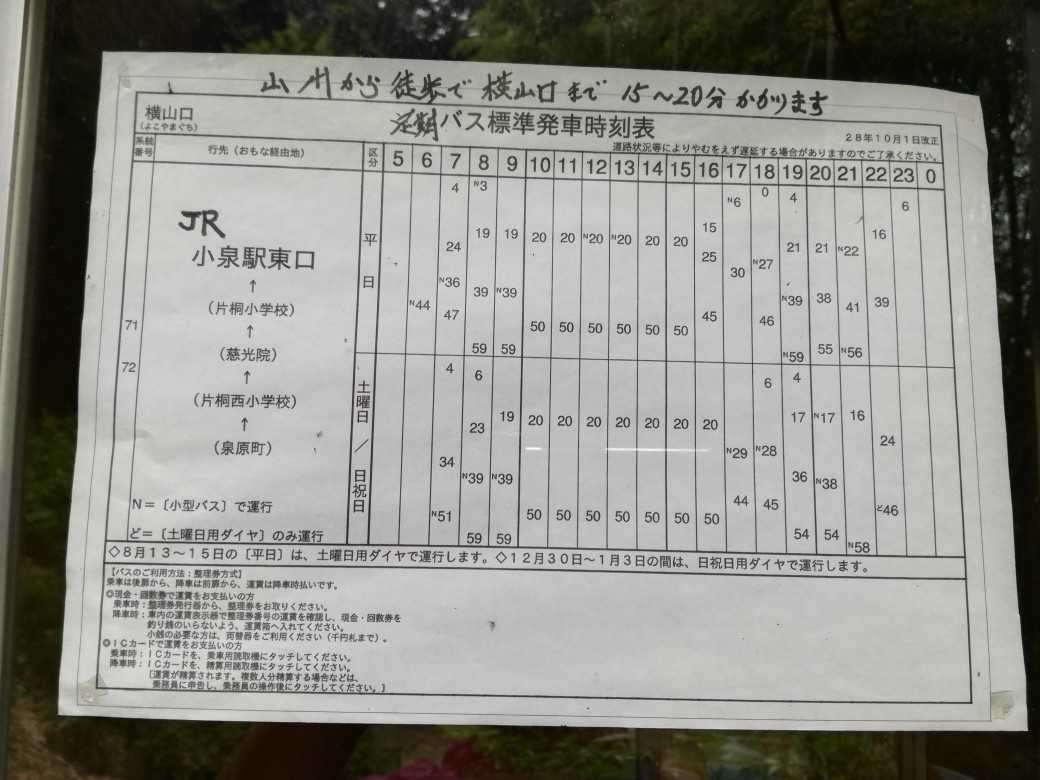 山川から徒歩で横山口まで15～20分かかります
横山口
（よこやまぐち）
定期バス標準発車時刻表
28年10月1日改正
道路状況等によりやむをえず遅延する場合がありますのでご了承ください。
系統番号 行先（おもな経由地） 区分 5 6 7 8 9 10 11 12 13 14 15 16 17 18 19 20 21 22 23 0
71
72
JR
小泉駅東口
↑
（片桐小学校）
↑
（慈光院）
↑
（片桐西小学校）
↑
（泉原町）
N＝〔小型バス〕で運行
ど＝〔土曜日用ダイヤ〕のみ運行
平日
4 N3 N6 0 4 6
15
24 19 19 20 20 N20 N20 20 20 25 30 N27 21 21 N22 16
N44 N36 39 N39 N39 38 41 39
47 50 50 50 50 50 50 45 46
59 59 N59 55 N56
土曜日／日祝日
4 6 6 4
23 19 20 20 20 20 20 20 20 17 N17 16 24
34 N39 N39 N29 N28 36 N38
N51 50 50 50 50 50 50 50 44 45 ど46
59 59 54 54 N58
◇8月13～15日の〔平日〕は、土曜日用ダイヤで運行します。◇12月30日～1月3日の間は、日祝日用ダイヤで運行します。
【バスのご利用方法：整理券方式】
乗車は後扉から、降車は前扉から、運賃は降車時払いです。
◎現金・回数券で運賃をお支払いの方
乗車時：整理券発行器から、整理券をお取りください。
降車時：車内の運賃表示器で整理券番号の運賃を確認し、現金・回数券を
釣り銭のいらないよう、運賃箱へ入れてください。
小銭の必要な方は、両替器をご利用ください（千円札まで）。
◎ICカードで運賃をお支払いの方
乗車時：ICカードを、乗車用読取機にタッチしてください。
降車時：ICカードを、精算用読取機にタッチしてください。
［運賃が精算されます。複数人分精算する場合などは、
乗務員に申告し、乗務員の操作後にタッチしてください。］